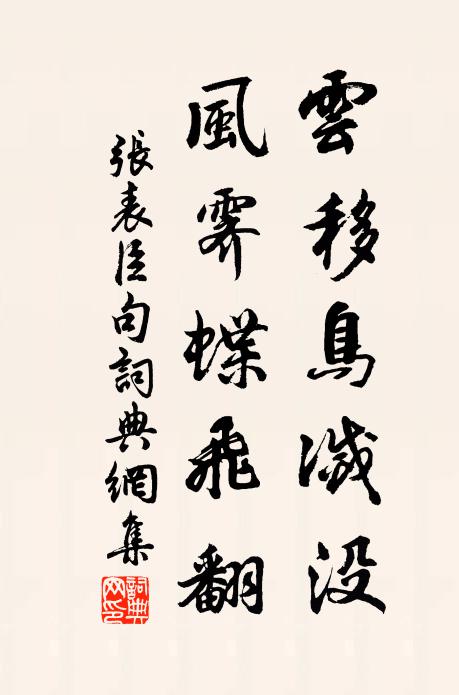 雲移鳥滅没
風霽蝶飛翻
張表臣句詞典網集
詞典網印